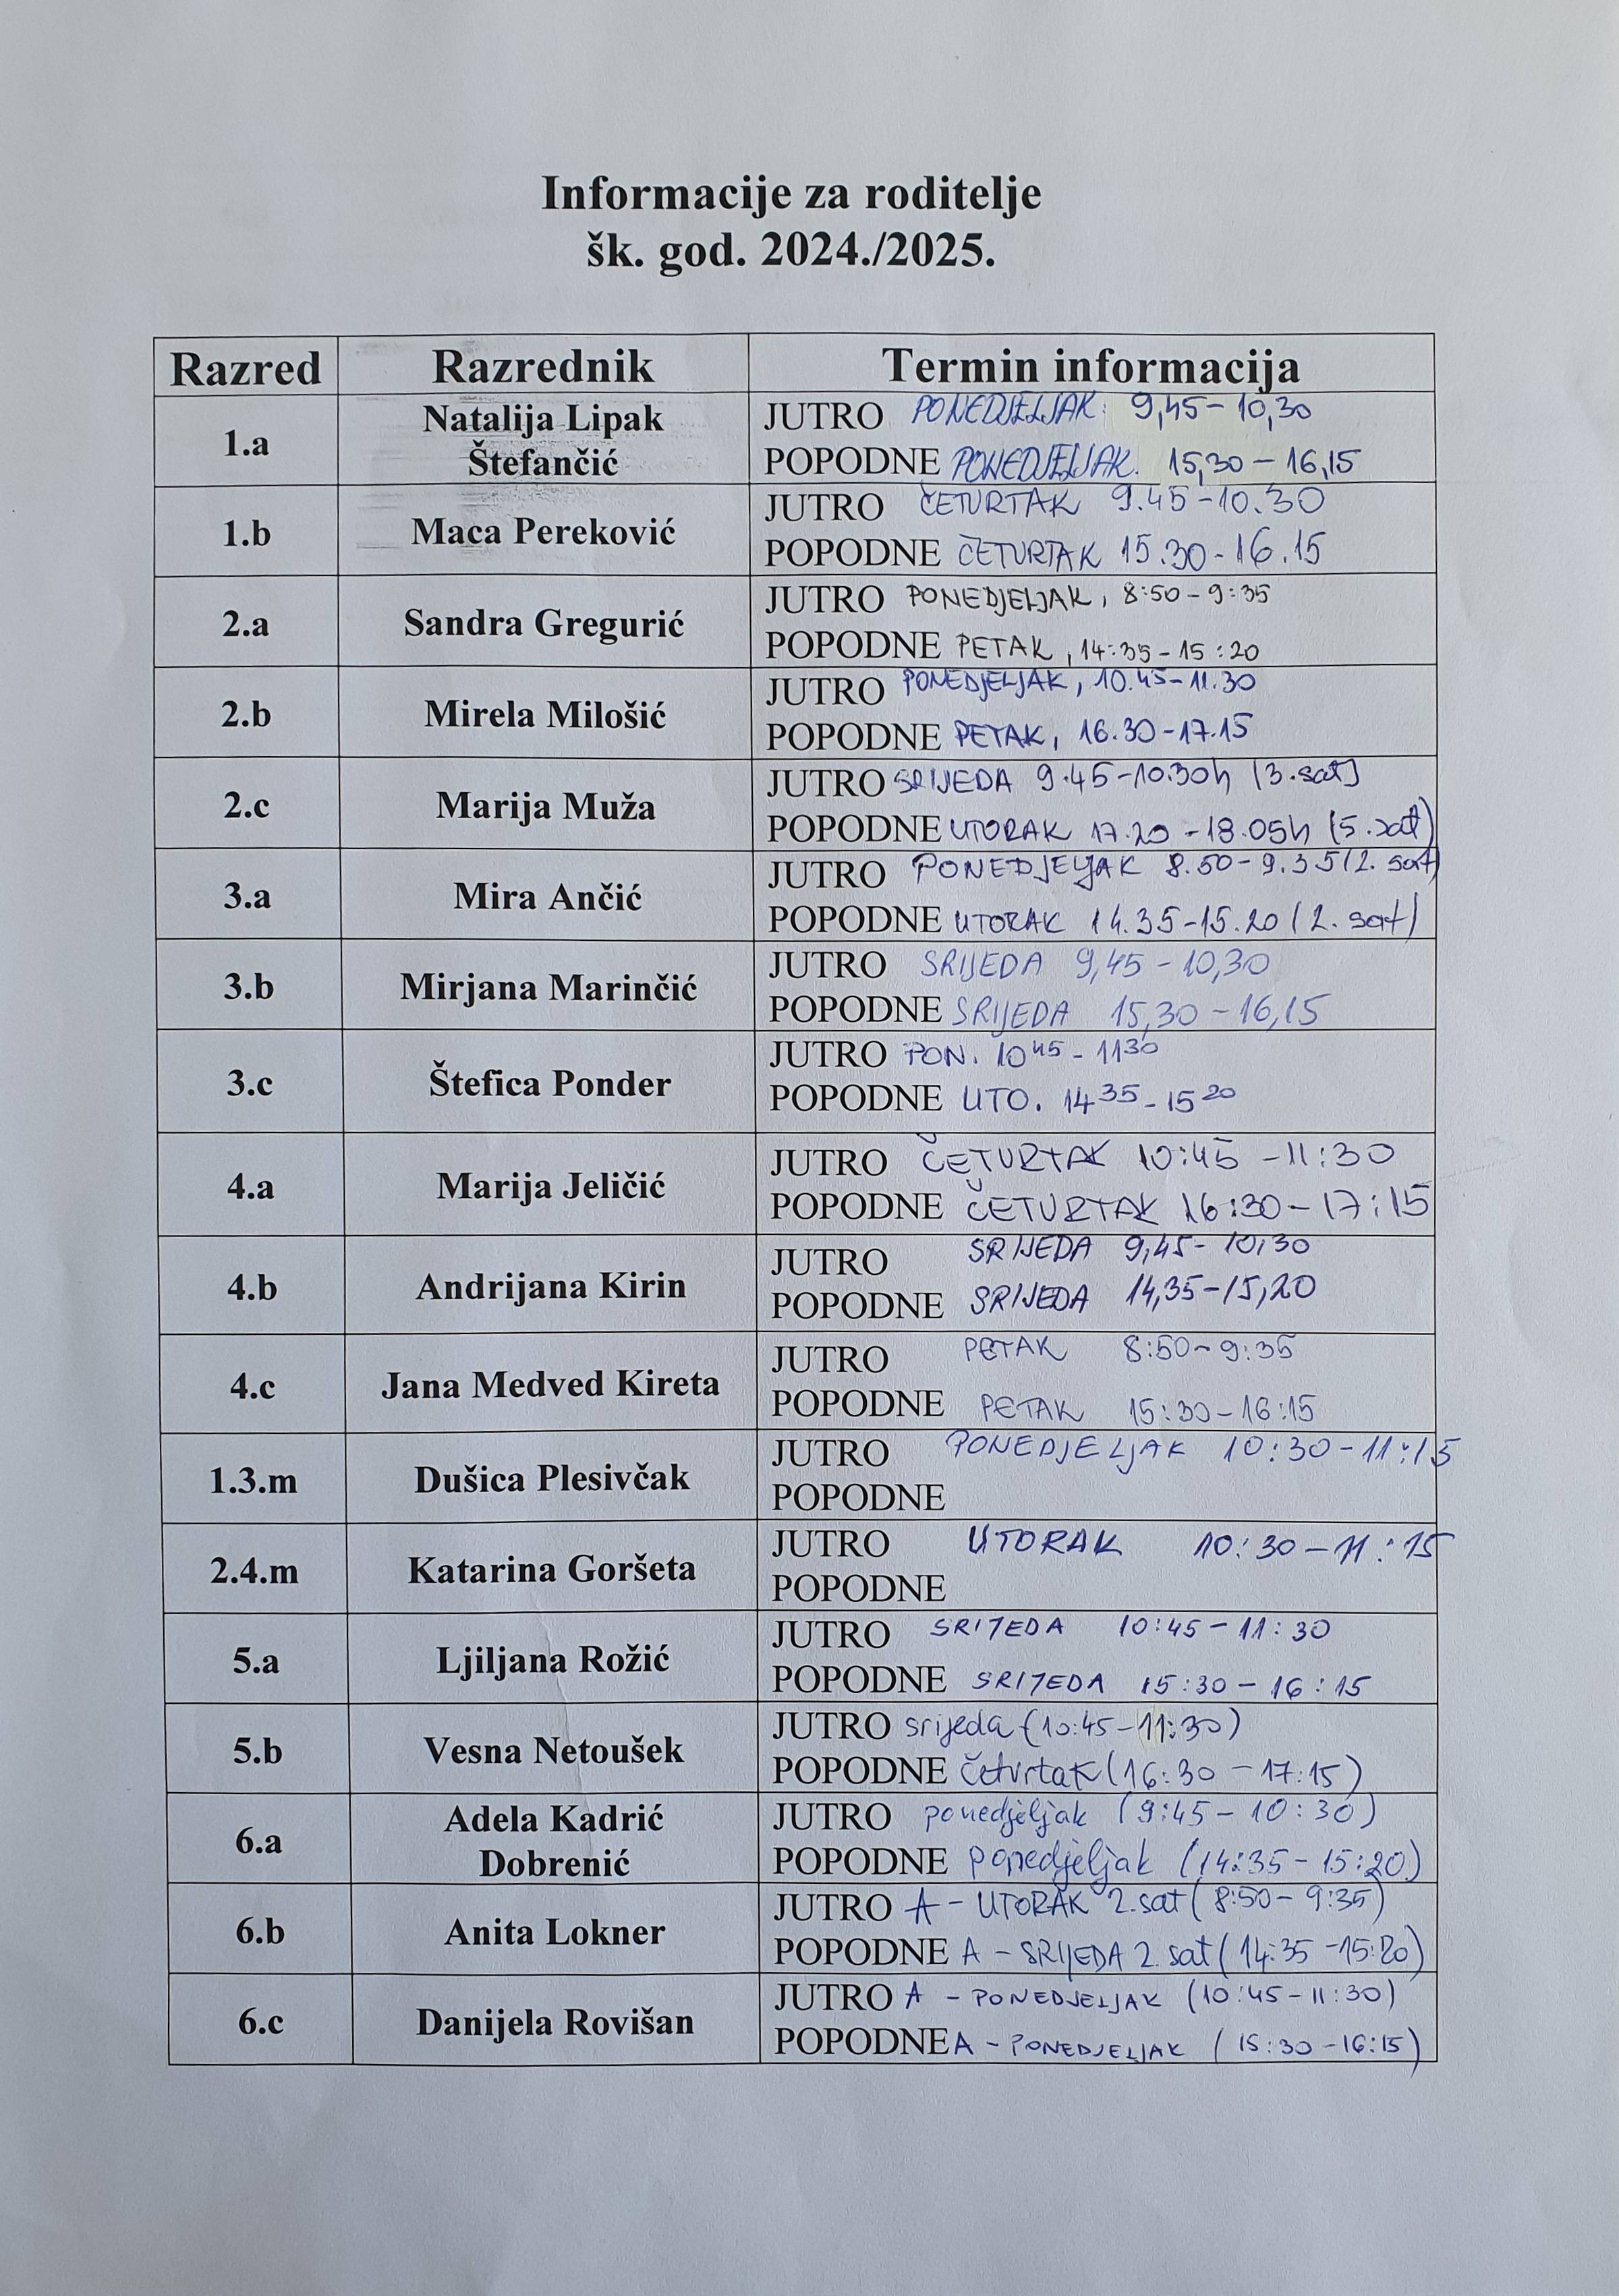 Informacije za roditelje
šk. god. 2024./2025.
Razred Razrednik Termin informacija
1.a Natalija Lipak Štefančić JUTRO PONEDJELJAK: 9,45-10,30
POPODNE PONEDJELJAK. 15,30-16,15
1.b Maca Pereković JUTRO ČETVRTAK 9.45-10.30
POPODNE ČETVRTAK 15.30-16.15
2.a Sandra Gregurić JUTRO PONEDJELJAK, 8:50-9:35
POPODNE PETAK, 14:35-15:20
2.b Mirela Milošić JUTRO PONEDJELJAK, 10.45-11.30
POPODNE PETAK, 16.30-17.15
2.c Marija Muža JUTRO SRIJEDA 9.45-10.30h (3.sat)
POPODNE UTORAK 17.20-18.05h (5.sat)
3.a Mira Ančić JUTRO PONEDJELJAK 8.50-9.35 (2. sat)
POPODNE UTORAK 14.35-15.20 (2. sat)
3.b Mirjana Marinčić JUTRO SRIJEDA 9,45-10,30
POPODNE SRIJEDA 15,30-16,15
3.c Štefica Ponder JUTRO PON. 10 45 - 11 30
POPODNE UTO. 14 35 - 15 20
4.a Marija Jeličić JUTRO ČETVRTAK 10:45-11:30
POPODNE ČETVRTAK 16:30-17:15
4.b Andrijana Kirin JUTRO SRIJEDA 9,45-10,30
POPODNE SRIJEDA 14,35-15,20
4.c Jana Medved Kireta JUTRO PETAK 8:50-9:35
POPODNE PETAK 15:30-16:15
1.3.m Dušica Plesivčak JUTRO PONEDJELJAK 10:30-11:15
POPODNE
2.4.m Katarina Goršeta JUTRO UTORAK 10:30-11:15
POPODNE
5.a Ljiljana Rožić JUTRO SRIJEDA 10:45-11:30
POPODNE SRIJEDA 15:30-16:15
5.b Vesna Netoušek JUTRO srijeda (10:45-11:30)
POPODNE četvrtak (16:30-17:15)
6.a Adela Kadrić Dobrenić JUTRO ponedjeljak (9:45-10:30)
POPODNE ponedjeljak (14:35-15:20)
6.b Anita Lokner JUTRO A - UTORAK 2.sat (8:50-9:35)
POPODNE A - SRIJEDA 2. sat (14:35-15:20)
6.c Danijela Rovišan JUTRO A - PONEDJELJAK (10:45-11:30)
POPODNE A - PONEDJELJAK (15:30-16:15)